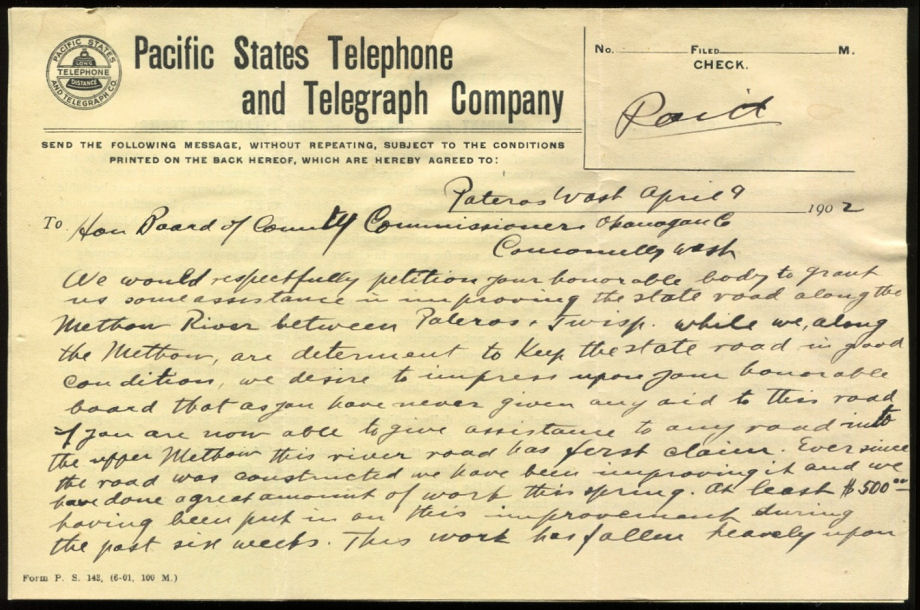 PACIFIC STATES
LONG
TELEPHONE
DISTANCE
AND TELEGRAPH CO.
Pacific States Telephone
and Telegraph Company
No. Filed M.
CHECK.
Paid
SEND THE FOLLOWING MESSAGE, WITHOUT REPEATING, SUBJECT TO THE CONDITIONS
PRINTED ON THE BACK HEREOF, WHICH ARE HEREBY AGREED TO:
Pateros Wash April 9 1902
To Hon Board of County Commissioners Okanogan Co
Conconully Wash
We would respectfully petition your honorable body to grant
us some assistance in improving the state road along the
Methow River between Pateros + Twisp. while we, along
the Methow, are determent to Keep the state road in good
condition, we desire to impress upon your honorable
board that as you have never given any aid to this road
if you are now able to give assistance to any road into
the upper Methow this river road has first claim. Ever since
the road was constructed we have been improving it and we
have done a great amount of work this spring. At least $500.00
having been put in on this improvement during
the past six weeks. This work has fallen heavely upon
Form P. S. 142, (6-01, 100 M.)